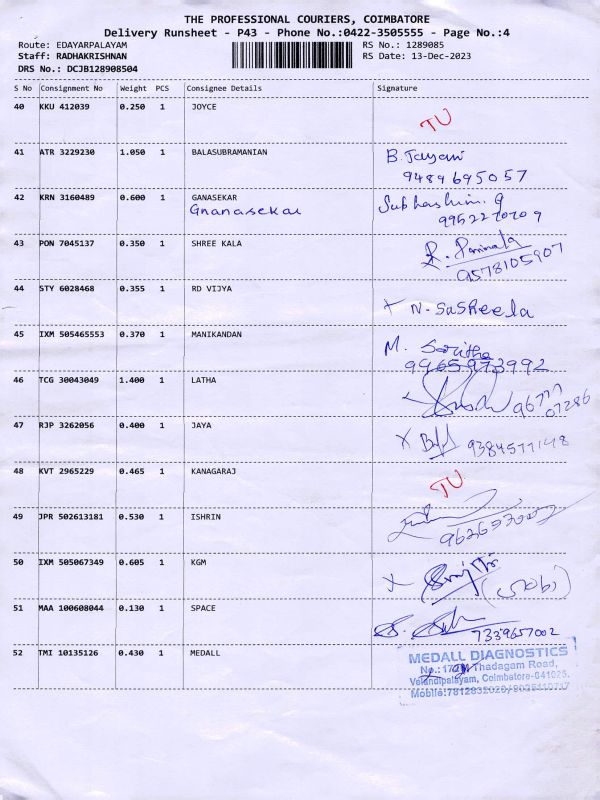 THE PROFESSIONAL COURIERS, COIMBATORE
Delivery Runsheet - P43 - Phone No.:0422-3505555 - Page No.:4
Route: EDAYARPALAYAM RS No.: 1289085
Staff: RADHAKRISHNAN RS Date: 13-Dec-2023
DRS No.: DCJB128908504
S No Consignment No Weight PCS Consignee Details Signature
40 KKU 412039 0.250 1 JOYCE TU
41 ATR 3229230 1.050 1 BALASUBRAMANIAN B. Jayani
9489695057
42 KRN 3160489 0.600 1 GANASEKAR Subhashini. g
Gnanasekar 9952270709
43 PON 7045137 0.350 1 SHREE KALA R.
9578105907
44 STY 6028468 0.355 1 RD VIJYA N. SaSheela
45 IXM 505465553 0.370 1 MANIKANDAN M. Saritha
9965973992
46 TCG 30043049 1.400 1 LATHA 96777
07286
47 RJP 3262056 0.400 1 JAYA X 9384577148
48 KVT 2965229 0.465 1 KANAGARAJ TU
49 JPR 502613181 0.530 1 ISHRIN
50 IXM 505067349 0.605 1 KGM
51 MAA 100608044 0.130 1 SPACE 7339657002
52 TMI 10135126 0.430 1 MEDALL MEDALL DIAGNOSTICS
Thadagam Road,
Velandipalayam, Coimbatore-641025.